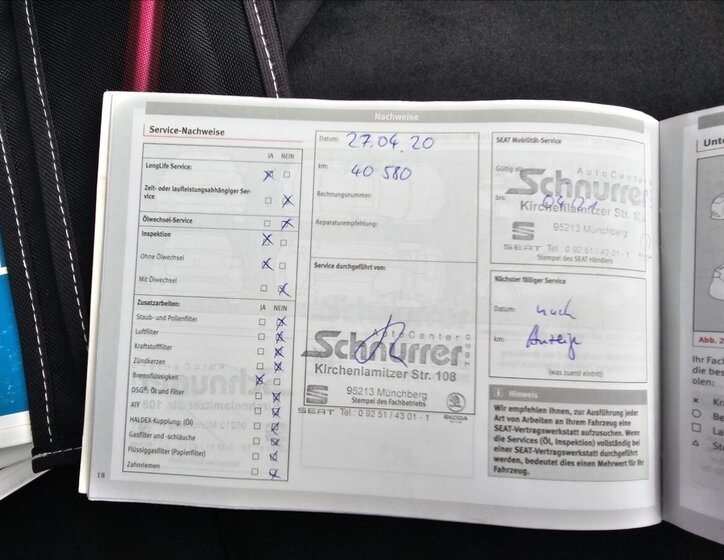 Nachweise
Service-Nachweise
JA NEIN
LongLife Service:
Zeit- oder laufleistungsabhängiger Ser-
vice
Ölwechsel-Service
Inspektion
Ohne Ölwechsel
Mit Ölwechsel
Zusatzarbeiten: JA NEIN
Staub- und Pollenfilter
Luftfilter
Kraftstofffilter
Zündkerzen
Bremsflüssigkeit
DSG®: Öl und Filter
ATF
HALDEX-Kupplung: (Öl)
Gasfilter und -schläuche
Flüssiggasfilter (Papierfilter)
Zahnriemen
18
Datum: 27.04.20
km: 40 580
Rechnungsnummer:
Reparaturempfehlung:
Service durchgeführt von:
AutoCenter
Schnurrer
GMBH
Kirchenlamitzer Str. 108
95213 Münchberg
Stempel des Fachbetriebs
SEAT Tel.: 0 92 51 / 43 01 - 1 SKODA
SEAT Mobilität-Service
Gültig ab
AutoCenter
Schnurrer
bis: 04/21
Kirchenlamitzer Str. 108
95213 Münchberg
SEAT Tel. 0 92 51 / 43 01 - 1
Stempel des SEAT Händlers
Nächster fälliger Service
Datum: nach
km: Anzeige
(was zuerst eintritt)
Hinweis
Wir empfehlen Ihnen, zur Ausführung jeder
Art von Arbeiten an Ihrem Fahrzeug eine
SEAT-Vertragswerkstatt aufzusuchen. Wenn
die Services (Öl, Inspektion) vollständig bei
einer SEAT-Vertragswerkstatt durchgeführt
werden, bedeutet dies einen Mehrwert für Ihr
Fahrzeug.
Unte
Abb. 2
Ihr Fach
die bes
olen:
Kr
B
La
St